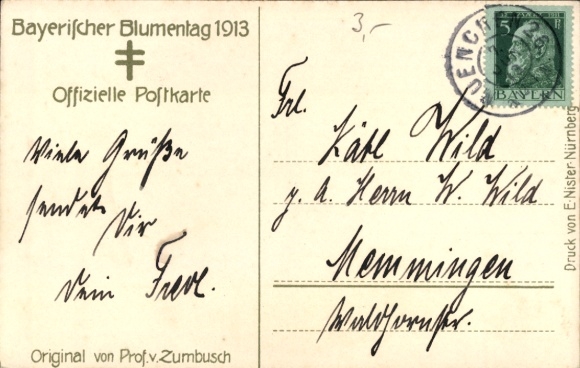 Bayerischer Blumentag 1913
Offizielle Postkarte
Viele Grüße
sendet
Dir
Dein Fredl.
Original von Prof. v. Zumbusch
3,-
5
BAYERN
MUENCHEN
Frl.
Käthl Wild
p. A. Herrn W. Wild
Memmingen
Waldhornstr.
Druck von E. Nister Nürnberg